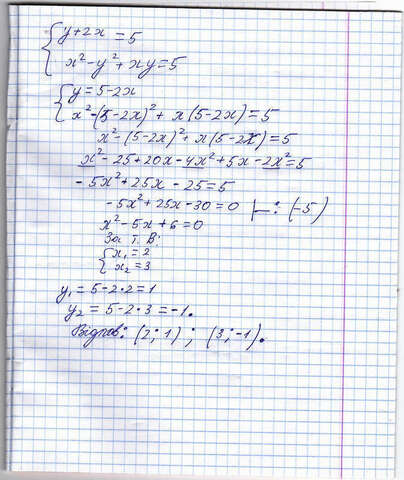 y+2x=5
x²-y²+xy=5
y=5-2x
x²-(5-2x)²+x(5-2x)=5
x²-(5-2x)²+x(5-2x)=5
x²-25+20x-4x²+5x-2x²=5
-5x²+25x-25=5
-5x²+25x-30=0 |-:(-5)
x²-5x+6=0
За т. В:
x₁=2
x₂=3
y₁=5-2·2=1
y₂=5-2·3=-1.
Відпов: (2;1); (3;-1).